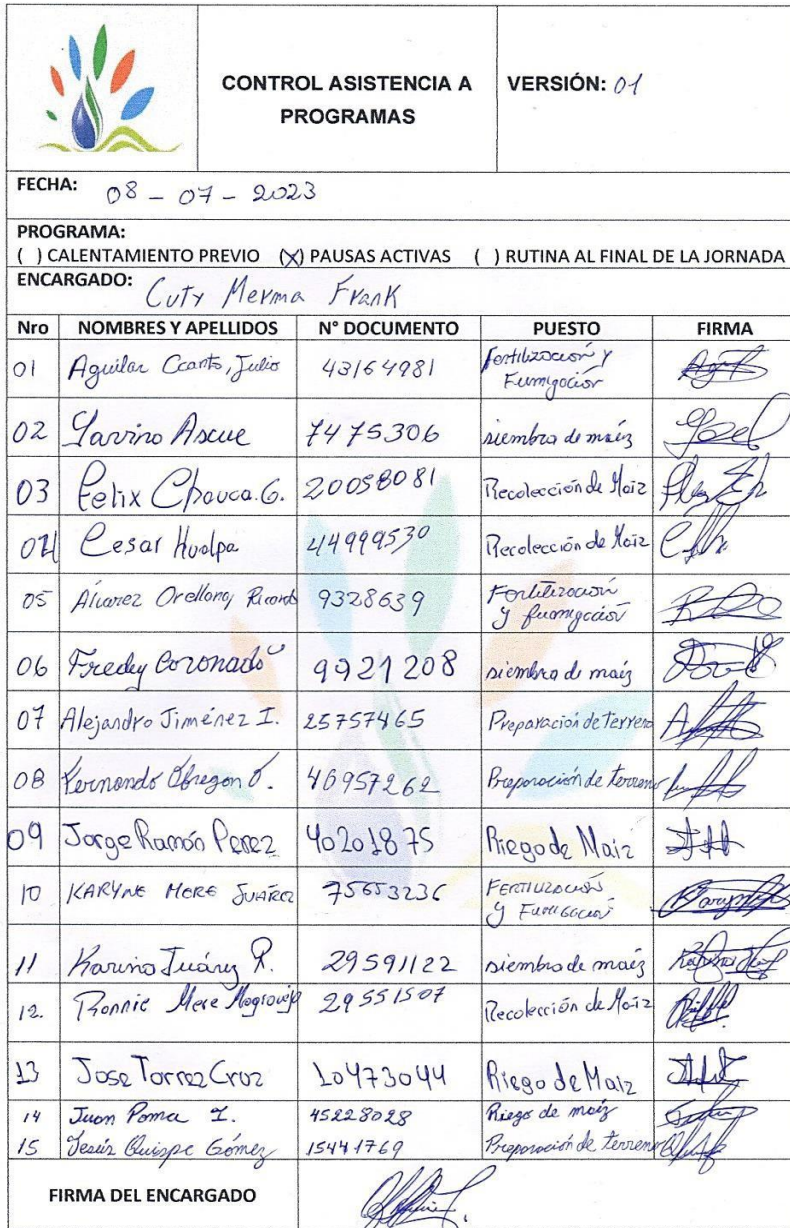 CONTROL ASISTENCIA A
PROGRAMAS
VERSIÓN: 01
FECHA: 08 - 07 - 2023
PROGRAMA:
( ) CALENTAMIENTO PREVIO (X) PAUSAS ACTIVAS ( ) RUTINA AL FINAL DE LA JORNADA
ENCARGADO: Cuty Merma Frank
Nro NOMBRES Y APELLIDOS N° DOCUMENTO PUESTO FIRMA
01 Aguilar Ccanto, Julio 43164981 Fertilización y
Fumigación
02 Ascue 7475306 siembra de maíz
03 Felix Chauca. G. 20058081 Recolección de Maiz
04 Cesar Hualpa 44999530 Recolección de Maiz
05 Alvarez Orellana, Ricardo 9328639 Fertilización
y fumigación
06 Fredy Coronado 9921208 siembra de maíz
07 Alejandro Jiménez I. 25757465 Preparación de terreno
08 Fernando Obregon O. 40957262 Preparación de terreno
09 Jorge Ramón Perez 40201875 Riego de Maiz
10 KARYNE MERE JUÁREZ 75653236 FERTILIZACIÓN
y FUMIGACIÓN
11 Karina Juárez R. 29591122 siembra de maíz
12. Ronnie Mere Mogrovejo 29551507 Recolección de Maiz
13 Jose Torrez Cruz 10473044 Riego de Maiz
14 Juan Poma I. 45228028 Riego de maiz
15 Jesús Quispe Gómez 15441769 Preparación de terreno
FIRMA DEL ENCARGADO